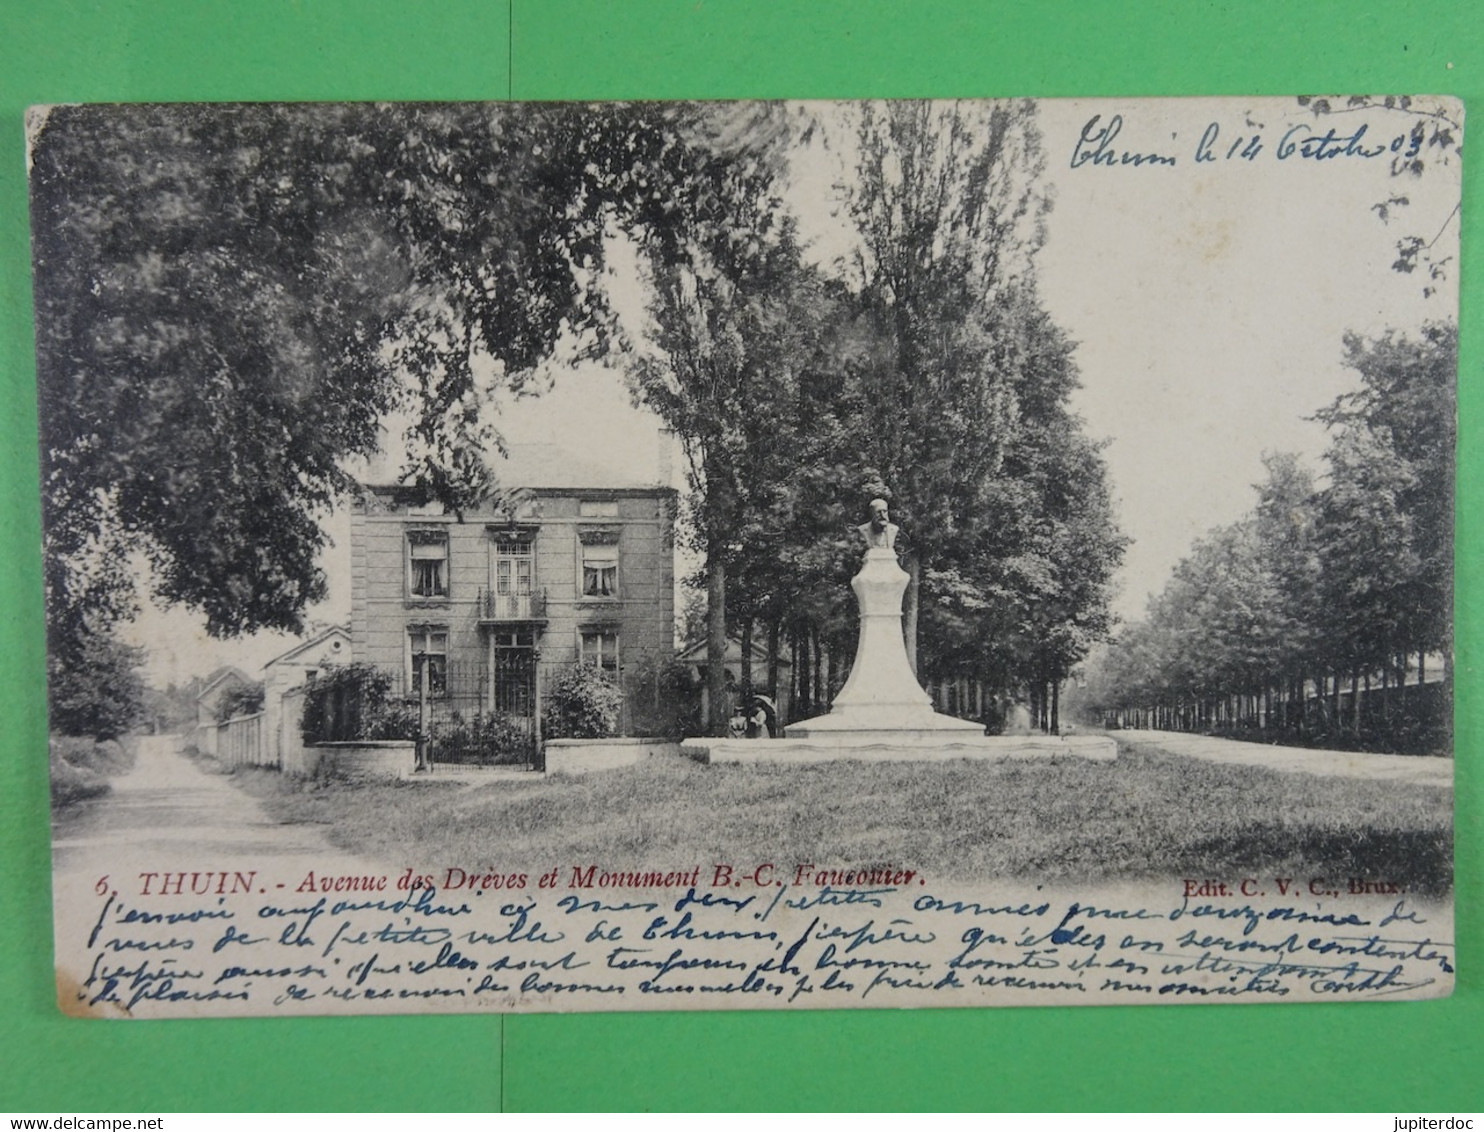 Thuin le 14 Octobre 03
6. THUIN. - Avenue des Drèves et Monument B.-C. Fauconier.
Edit. C. V. C., Brux.
J'envoir aujourd'hui à mes deux petites amies une douzaine de
vues de la petite ville de Thuin, j'espère qu'elles en seront contentes
j'espère aussi qu'elles sont toujours en bonne santé et en attendant
le plaisir de recevoir des bonnes nouvelles je les prie de recevoir mes amitiés
jupiterdoc
delcampe.net